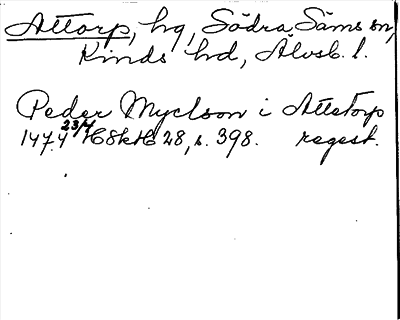 Attorp, hg, Södra Säms sn,
Kinds hd, Älvsb. l.
Peder Myclson i Attetorp
1474 23/4 HSkH 28, s. 398. regest.